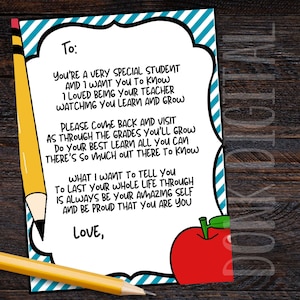 To:
You're a very special student
and I want you to know
I loved being your teacher
watching you learn and grow
Please come back and visit
as through the grades you'll grow
Do your best learn all you can
there's so much out there to know
What I want to tell you
to last your whole life through
is always be your amazing self
and be proud that you are you
Love,
DONA DIGITAL